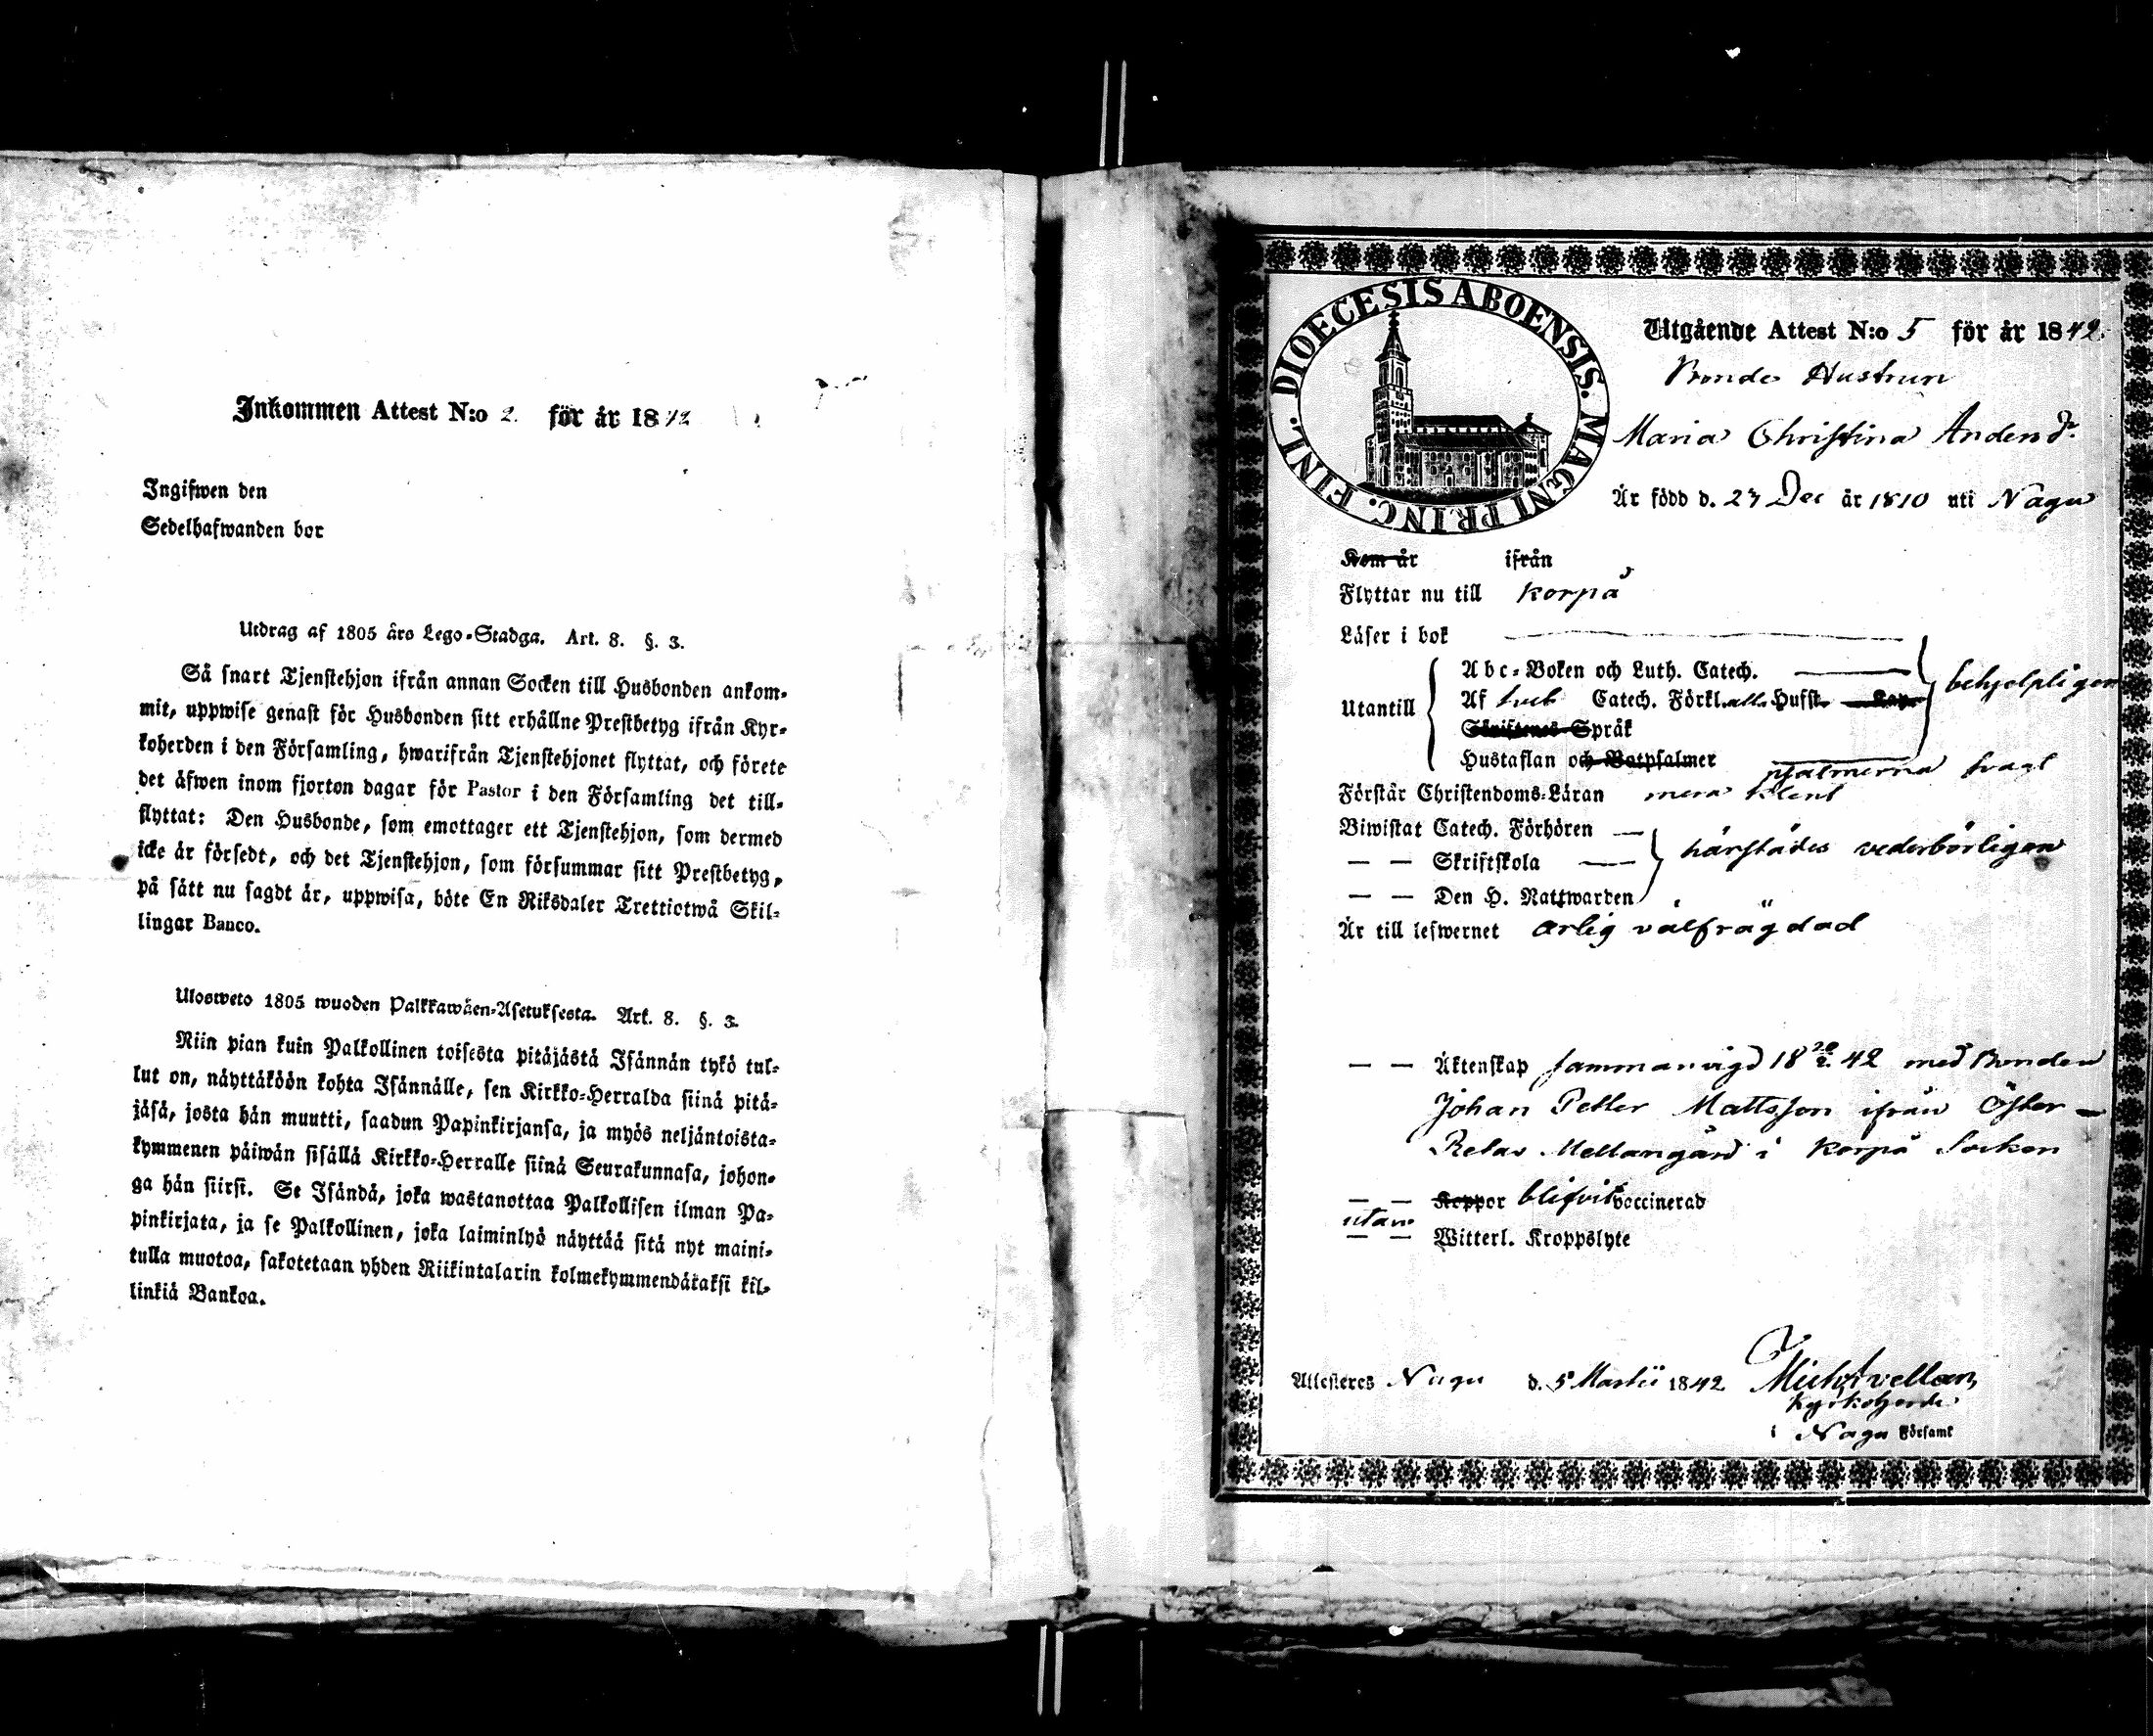 Inkommen Attest N:o 2. för år 1842
Ingifwen den
Sedelhafwanden bor
Utdrag af 1805 års Lego-Stadga. Art. 8. §. 3.
Så snart Tjenstehjon ifrån annan Socken till Husbonden ankom-
mit, uppwise genast för Husbonden sitt erhållne Prestbetyg ifrån Kyr-
koherden i den Församling, hwarifrån Tjenstehjonet flyttat, och förete
det äfwen inom fjorton dagar för Pastor i den Församling det till-
flyttat: Den Husbonde, som emottager ett Tjenstehjon, som dermed
icke är försedt, och det Tjenstehjon, som försummar sitt Prestbetyg,
på sätt nu sagdt är, uppwisa, böte En Riksdaler Trettiotwå Skil-
lingar Banco.
Ulosweto 1805 wuoden Palkkawäen-Asetuksesta. Art. 8. §. 3.
Niin pian kuin Palkollinen toisesta pitäjästä Isännän tykö tul-
lut on, näyttäköön kohta Isännälle, sen Kirkko-Herralda siinä pitä-
jäsä, josta hän muutti, saadun Papinkirjansa, ja myös neljäntoista-
kymmenen päiwän sisällä Kirkko-Herralle siinä Seurakunnasa, johon-
ga hän siirsi. Se Isändä, joka wastanottaa Palkollisen ilman Pa-
pinkirjata, ja se Palkollinen, joka laiminlyö näyttää sitä nyt maini-
tulla muotoa, sakotetaan yhden Riikintalarin kolmekymmendäkaksi kil-
linkiä Bankoa.
DIOECESIS ABOENSIS. MAGNI PRINC. FINL.
Utgående Attest N:o 5 för år 1842.
Bonde Hustrun
Maria Christina Andersdr.
Är född d. 23 Dec år 1810 uti Nagu
Kom år ifrån
Flyttar nu till Korpå
Läser i bok
Abc-Boken och Luth. Catech.
Utantill Af Luth Catech. Förkl. alla Hufst. Kap. behjelpligen
Skriftenes Språk
Hustaflan och Botpsalmer psalmerna svagt
Förstår Christendoms-Läran mera klent
Biwistat Catech. Förhören
— — Skriftskola härstädes vederbörligen
— — Den H. Nattwarden
Är till lefwernet ärlig välfrägdad
— — Äktenskap sammanvigd 18 20/2 42 med Bonden
Johan Petter Mattsson ifrån Öster-
Retais Mellangård i Korpå Socken
— — Koppor blifvit vaccinerad
utan
— — Witterl. Kroppslyte
Attesteres Nagu d. 5 Martii 1842
Kyrkoherde
i Nagu Församl